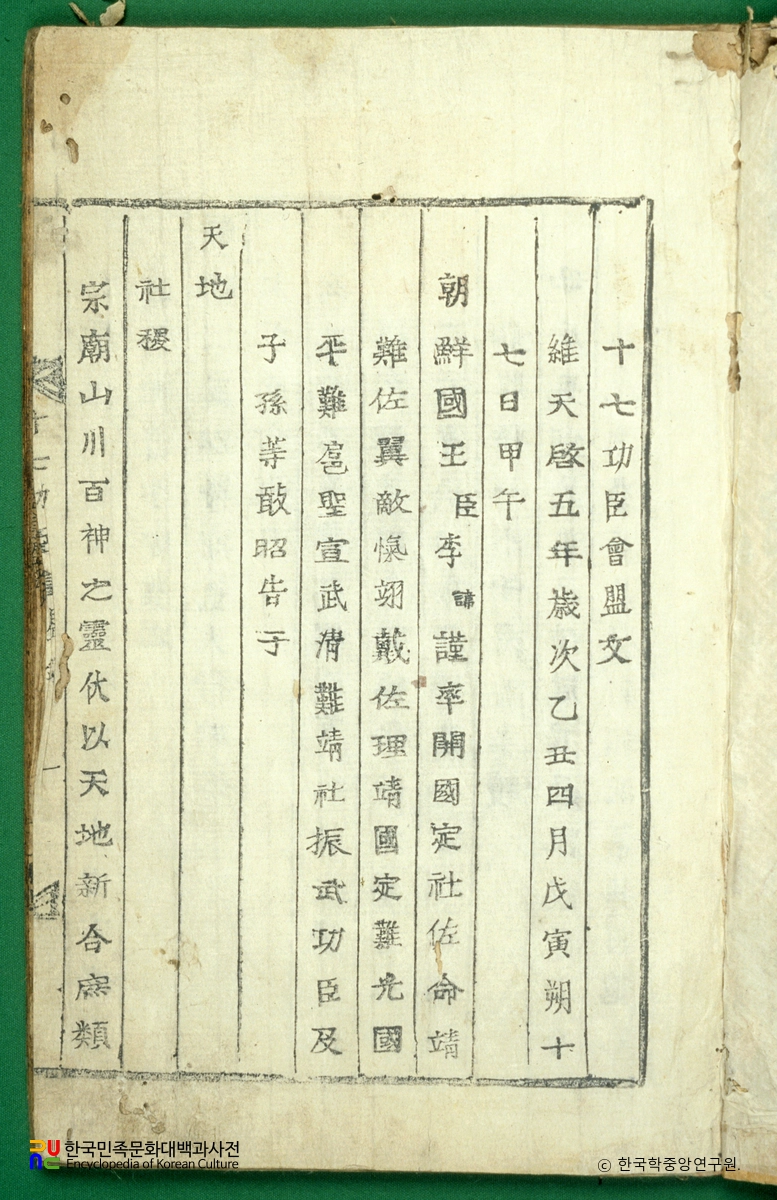 十七功臣會盟文
維天啓五年歲次乙丑四月戊寅朔十
七日甲午
朝鮮國王臣李諱謹率開國定社佐命靖
難佐翼敵愾翊戴佐理靖國定難光國
平難扈聖宣武淸難靖社振武功臣及
子孫等敢昭告于
天地
社稷
宗廟山川百神之靈伏以天地新合庶類
十七功臣
一
한국민족문화대백과사전
Encyclopedia of Korean Culture
© 한국학중앙연구원.